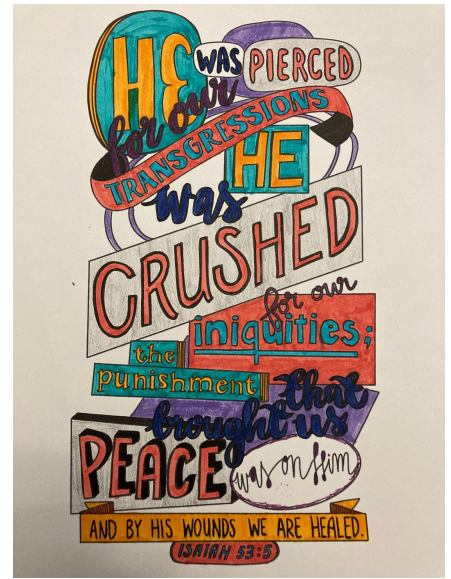 HE WAS PIERCED
for our
TRANSGRESSIONS
HE
was
CRUSHED
for our
iniquities;
the
punishment
that
brought us
PEACE
was on Him
AND BY HIS WOUNDS WE ARE HEALED.
ISAIAH 53:5